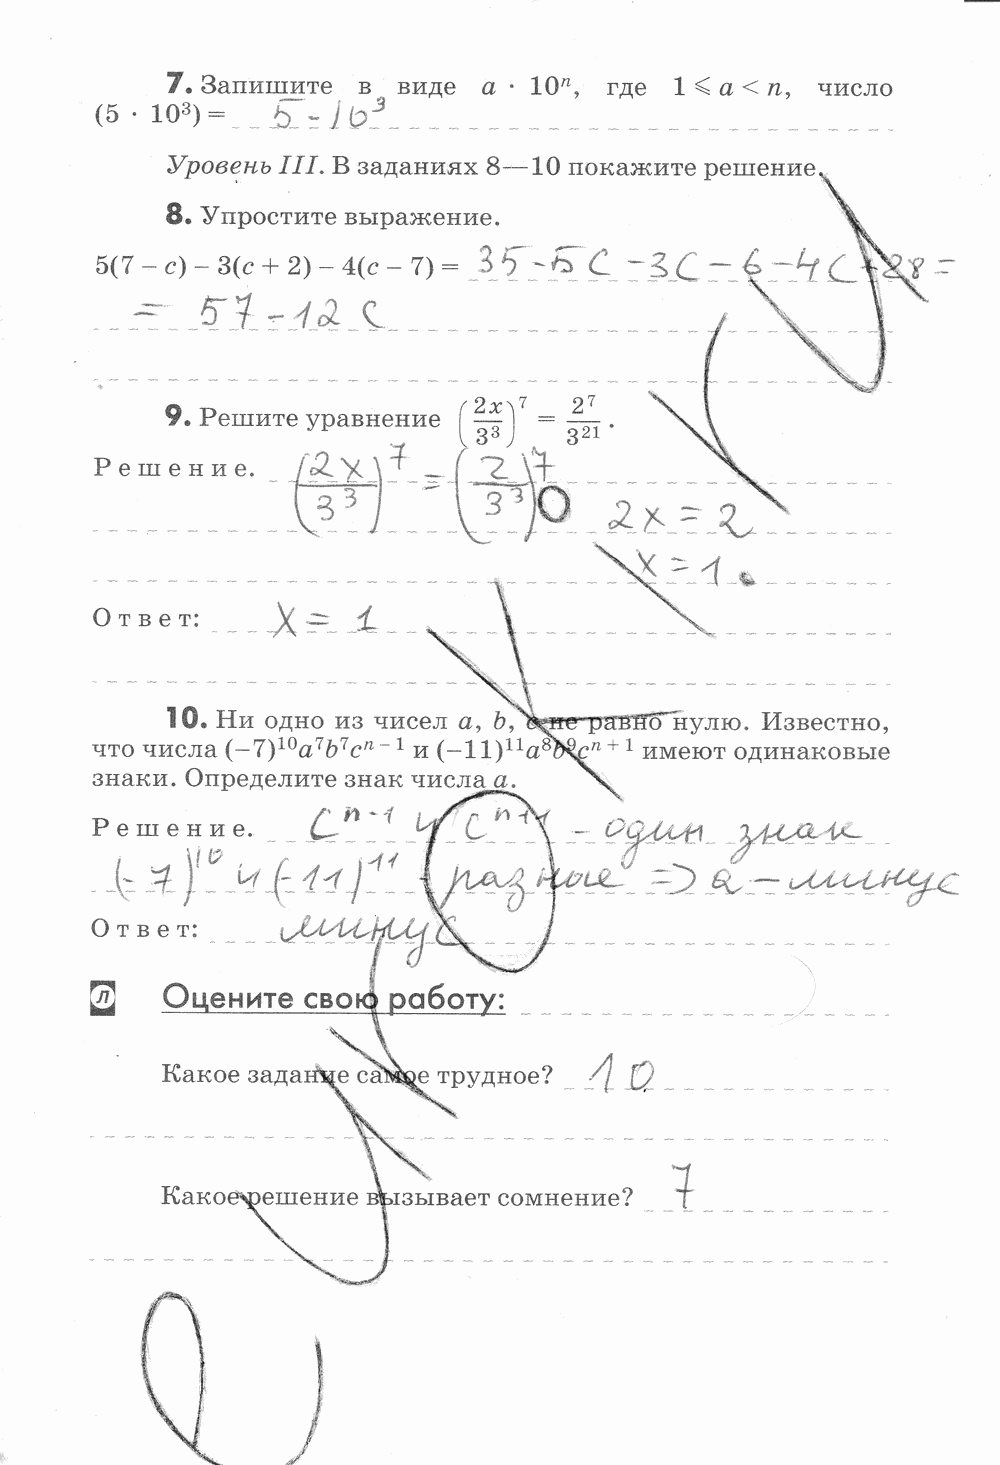 7. Запишите в виде a · 10ⁿ, где 1 ⩽ a < n, число
(5 · 10³) = 5 · 10³
Уровень III. В заданиях 8—10 покажите решение.
8. Упростите выражение.
5(7 – c) – 3(c + 2) – 4(c – 7) = 35 - 5c - 3c - 6 - 4c + 28 =
= 57 - 12c
9. Решите уравнение (2x/3³)⁷ = 2⁷/3²¹.
Решение. (2x/3³)⁷ = (2/3³)⁷
2x = 2
x = 1.
Ответ: x = 1
10. Ни одно из чисел a, b, c не равно нулю. Известно,
что числа (–7)¹⁰a⁷b⁷cⁿ⁻¹ и (–11)¹¹a⁸b⁹cⁿ⁺¹ имеют одинаковые
знаки. Определите знак числа a.
Решение. cⁿ⁻¹ и cⁿ⁺¹ - один знак
(-7)¹⁰ и (-11)¹¹ - разные => a - минус
Ответ: минус
л Оцените свою работу:
Какое задание самое трудное? 10
Какое решение вызывает сомнение? 7